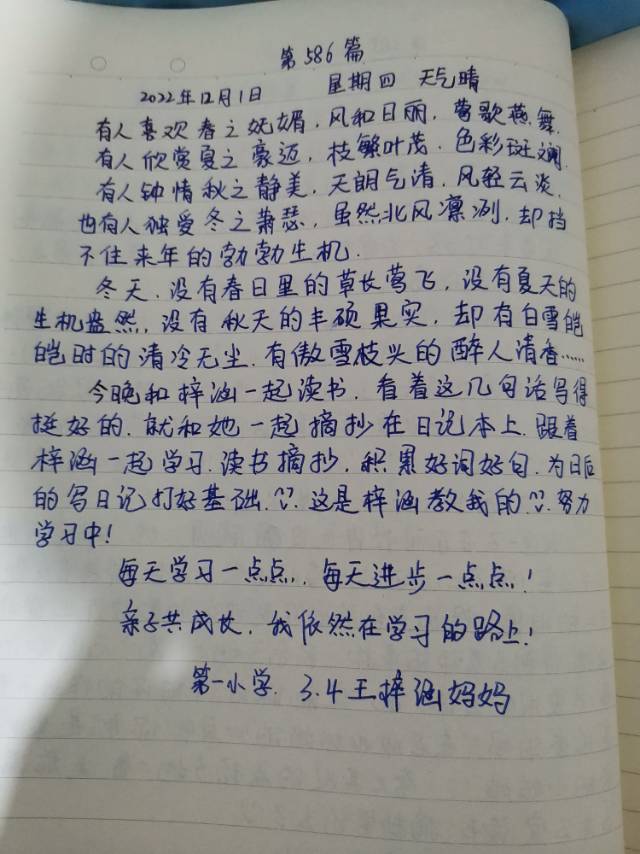 第586篇
2022年12月1日 星期四 天气晴
有人喜欢春之妩媚,风和日丽,莺歌燕舞.
有人欣赏夏之豪迈,枝繁叶茂,色彩斑斓.
有人钟情秋之静美,天朗气清,风轻云淡.
也有人独爱冬之萧瑟,虽然北风凛冽,却挡
不住来年的勃勃生机.
冬天,没有春日里的草长莺飞,没有夏天的
生机盎然,没有秋天的丰硕果实,却有白雪皑
皑时的清冷无尘,有傲雪枝头的醉人清香……
今晚和梓涵一起读书,看着这几句话写得
挺好的,就和她一起摘抄在日记本上,跟着
梓涵一起学习,读书摘抄,积累好词好句,为日后
的写日记打好基础.这是梓涵教我的.努力
学习中!
每天学习一点点,每天进步一点点!
亲子共成长,我依然在学习的路上!
第一小学.3.4王梓涵妈妈